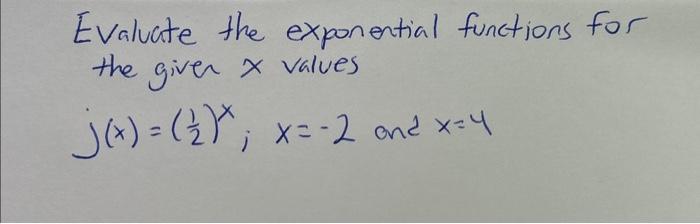 Evaluate the exponential functions for
the given x values
j(x) = (1/2)^x ; x = -2 and x=4